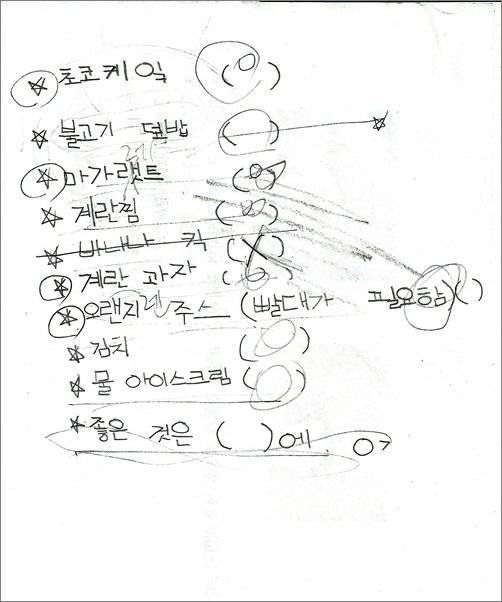 ☆ 초코케잌 (O)
☆ 불고기 덮밥 ( ) ☆
☆ 마가랫트 (O)
☆ 계란찜 (O)
☆ 바나나 킥 (X)
☆ 계란 과자 (O)
☆ 오랜지 주스 (빨대가 필요함)( )
☆ 김치 (O)
☆ 물 아이스크림 (O)
☆ 좋은 것은 ( )에 O